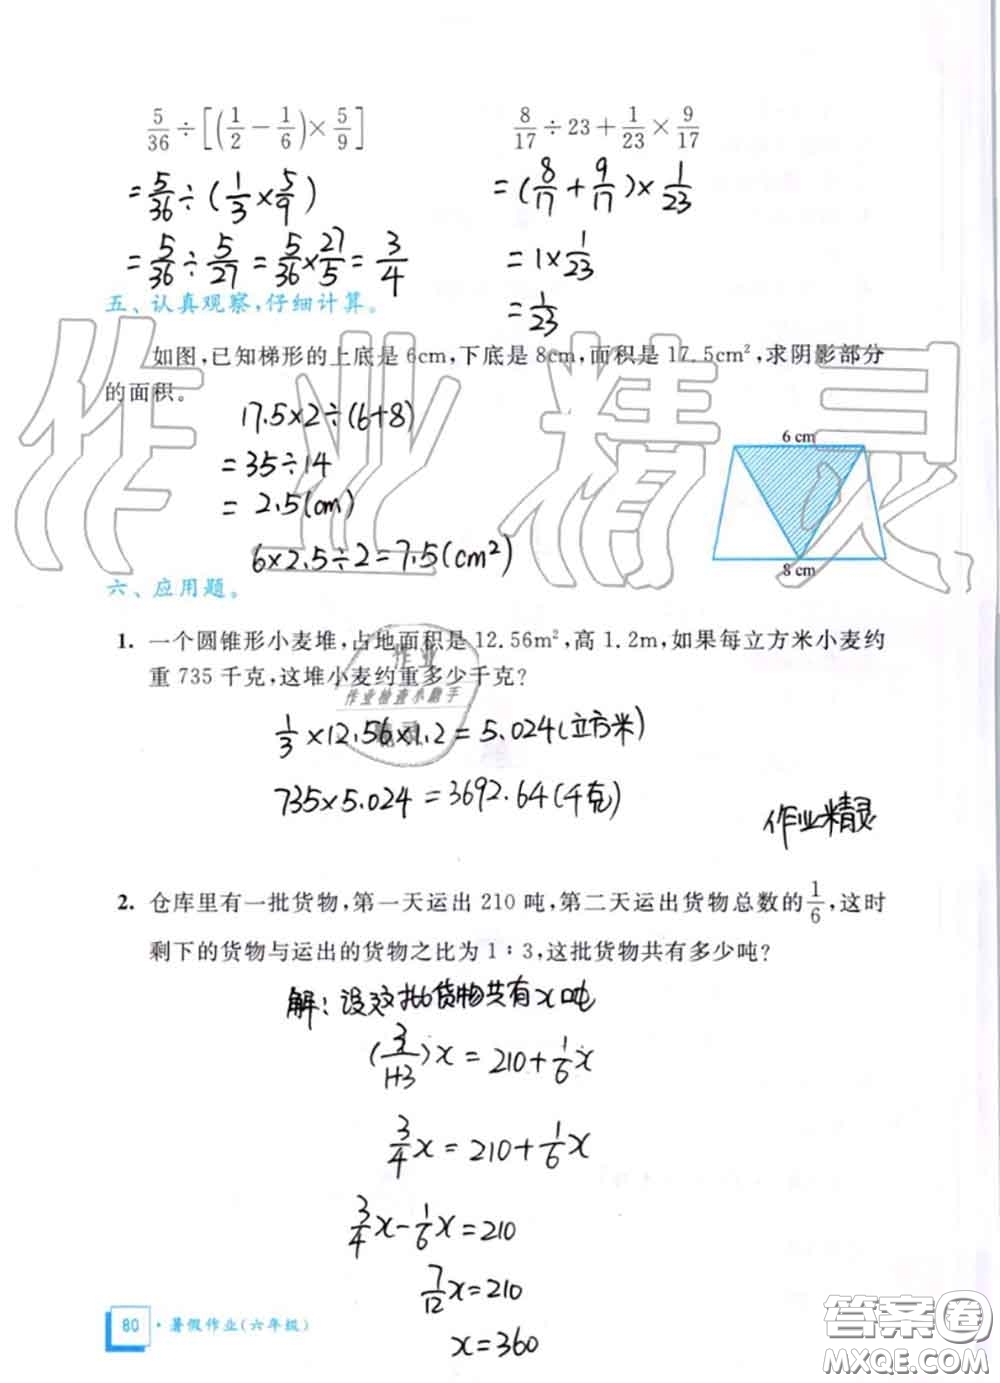 5/36 ÷ [(1/2 − 1/6) × 5/9]
= 5/36 ÷ (1/3 × 5/9)
= 5/36 ÷ 5/27 = 5/36 × 27/5 = 3/4
8/17 ÷ 23 + 1/23 × 9/17
= (8/17 + 9/17) × 1/23
= 1 × 1/23
= 1/23
五、认真观察,仔细计算。
如图,已知梯形的上底是6cm,下底是8cm,面积是17.5cm²,求阴影部分
的面积。
17.5×2÷(6+8)
= 35÷14
= 2.5(cm)
6×2.5÷2=7.5(cm²)
6 cm
8 cm
作业精灵
六、应用题。
1. 一个圆锥形小麦堆,占地面积是12.56m²,高1.2m,如果每立方米小麦约
重735千克,这堆小麦约重多少千克?
作业
作业检查小助手
精灵
1/3×12.56×1.2=5.024(立方米)
735×5.024=3692.64(千克)
作业精灵
2. 仓库里有一批货物,第一天运出210吨,第二天运出货物总数的1/6,这时
剩下的货物与运出的货物之比为1:3,这批货物共有多少吨?
解:设这批货物共有x吨
(3/1+3)x=210+1/6x
3/4x=210+1/6x
3/4x−1/6x=210
7/12x=210
x=360
80·暑假作业(六年级)
答案卷
MXQE.COM